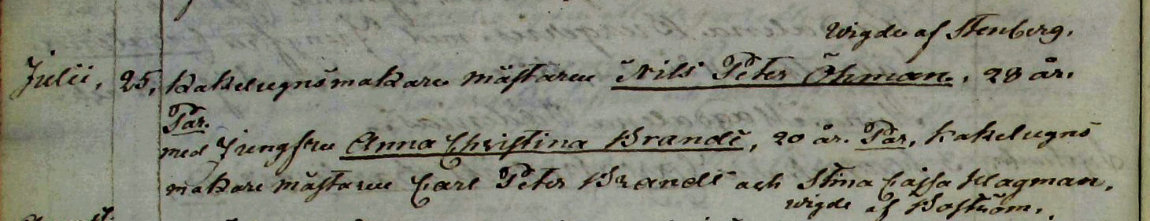 Wigde af Stenberg.
Julii, 25, Kakelugnsmakare mästaren Nils Peter Öhman, 28 år.
Par.
med Jungfru Anna Christina Brandt, 20 år. Par, Kakelugns
makare mästaren Carl Peter Brandt och Stina Cajsa Hagman,
wigde af Boström.